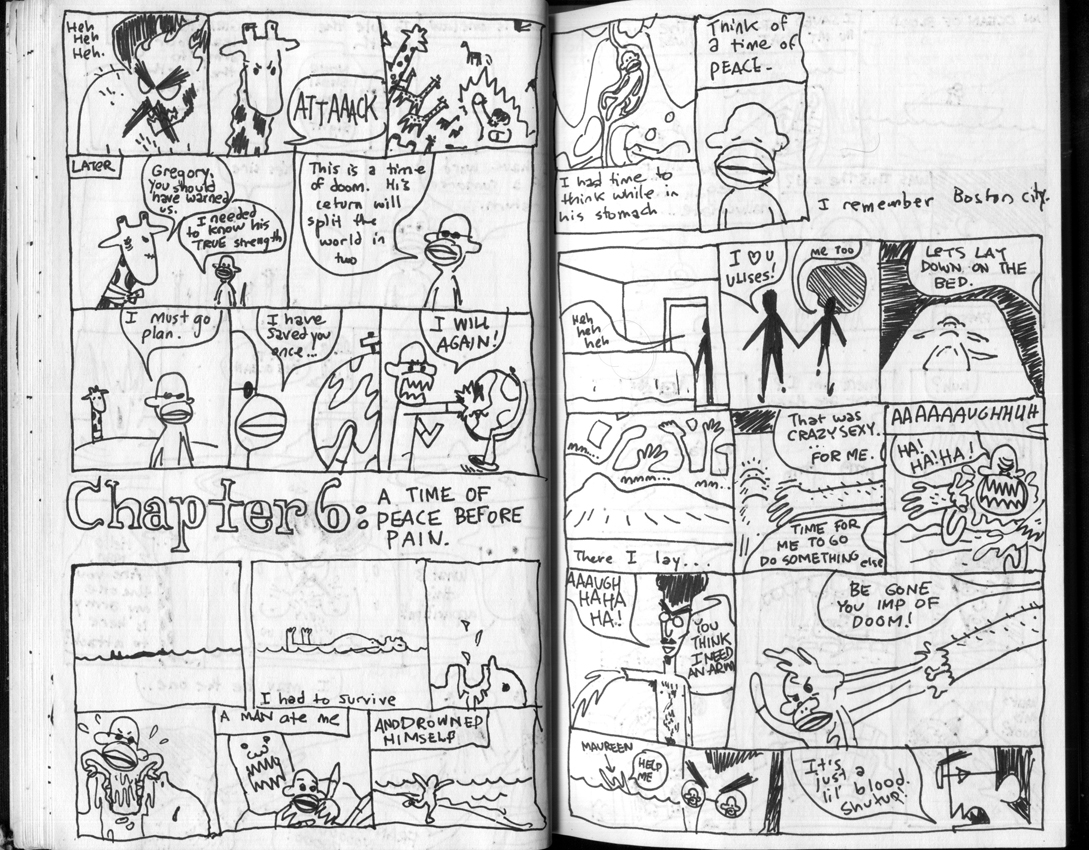 Heh
Heh
Heh.
ATTAAACK
LATER
Gregory,
You should
have warned
us.
I needed
to know his
TRUE strength
This is a time
of doom. His
return will
split the
world in
two
I must go
plan.
I have
saved you
once...
I WILL
AGAIN!
Chapter 6:
A TIME OF
PEACE BEFORE
PAIN.
I had to survive
A MAN ate me
AND DROWNED
HIMSELF
Think of
a time of
PEACE.
I had time to
think while in
his stomach
I remember Boston city.
Heh
heh
heh
I ♡ U
ULISES!
ME TOO
LETS LAY
DOWN ON THE
BED.
mm...
mmm...
mm...
There I lay...
That was
CRAZY SEXY.
FOR ME.
TIME FOR
ME TO GO
DO SOMETHING else
AAAAAAUGHHUH
HA!
HA! HA!
AAAUGH
HAHA
HA!
YOU
THINK
I NEED
AN ARM
BE GONE
YOU IMP OF
DOOM!
MAUREEN
HELP
ME
It's
just a
lil' blood.